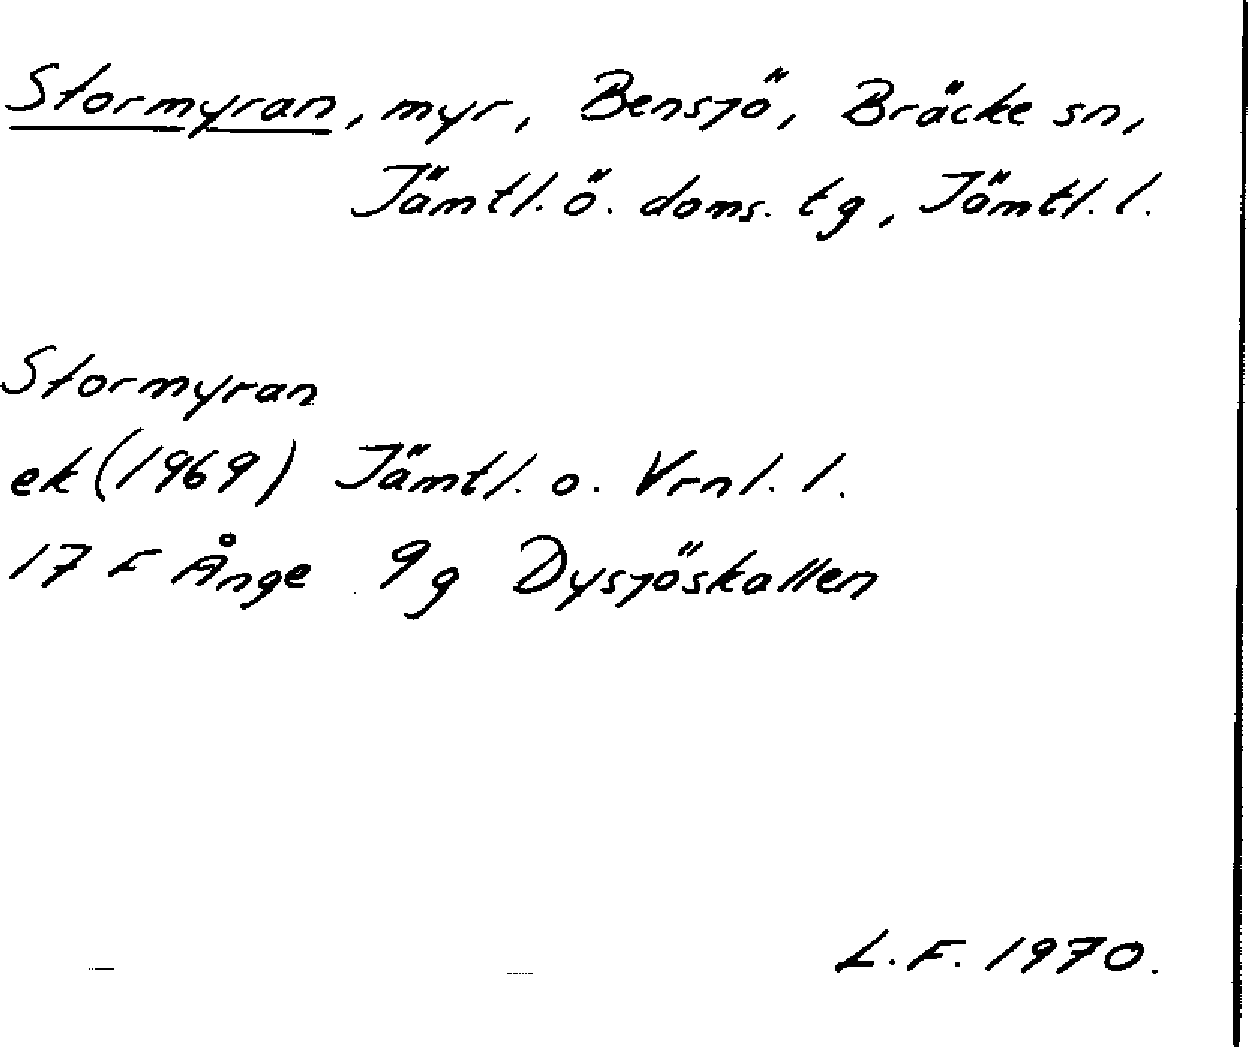 Stormyran, myr, Bensjö, Bräcke sn,
Jämtl. ö. doms. tg, Jämtl. l.
Stormyran
ek (1969) Jämtl. o. Vrnl. l.
17 F Ånge 9g Dysjöskallen
L. F. 1970.